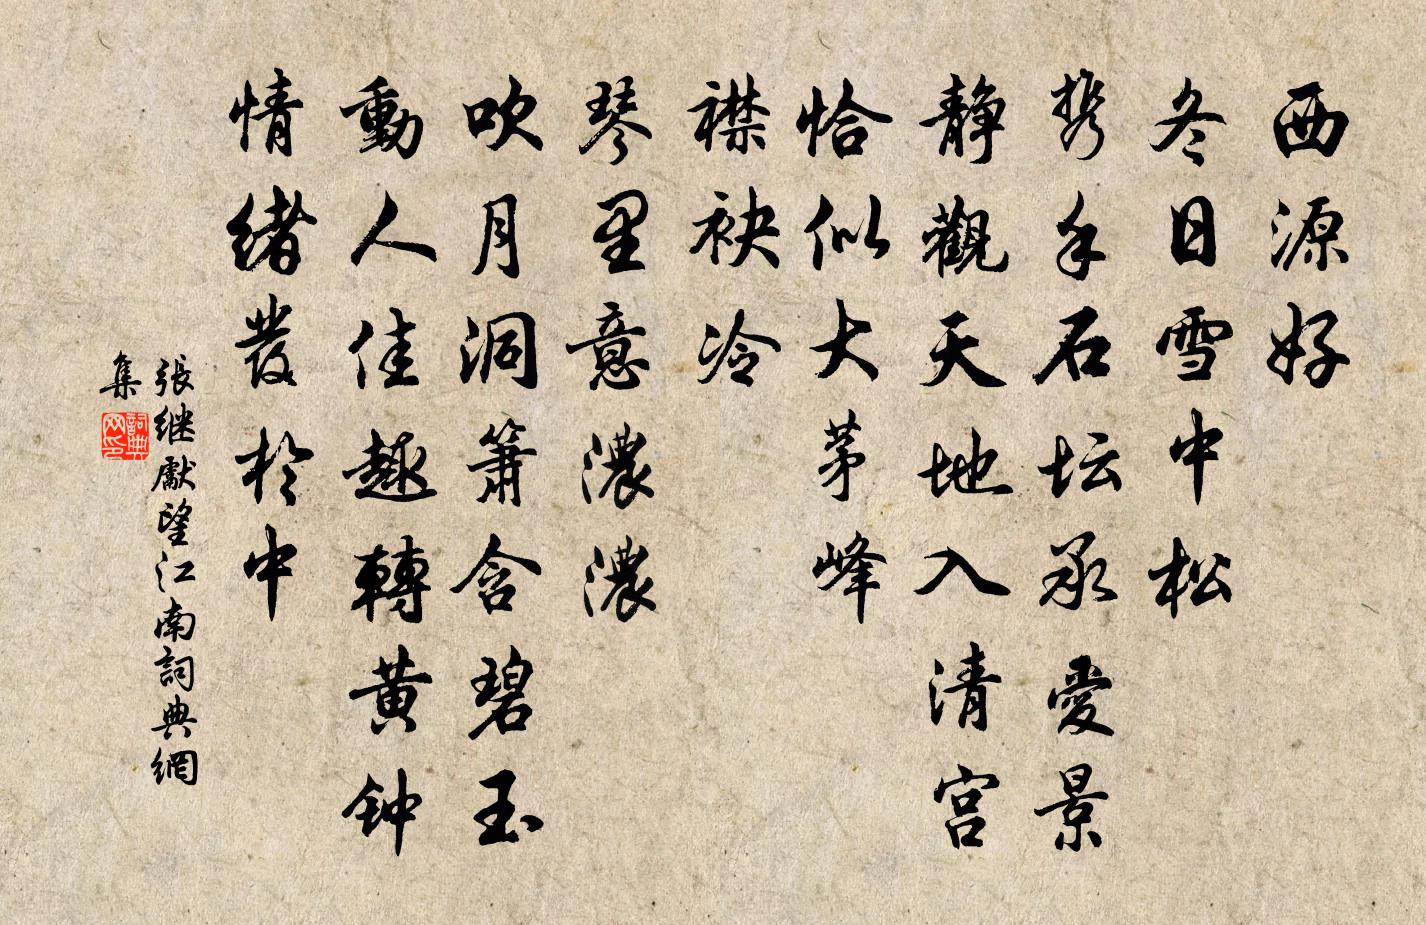 西源好
冬日雪中松
携手石坛承爱景
静觀天地入清宫
恰似大茅峰
襟袂冷
琴里意濃濃
吹月洞箫含碧玉
動人佳趣轉黄钟
情绪發於中
張继獻望江南詞典網
集
詞典网印